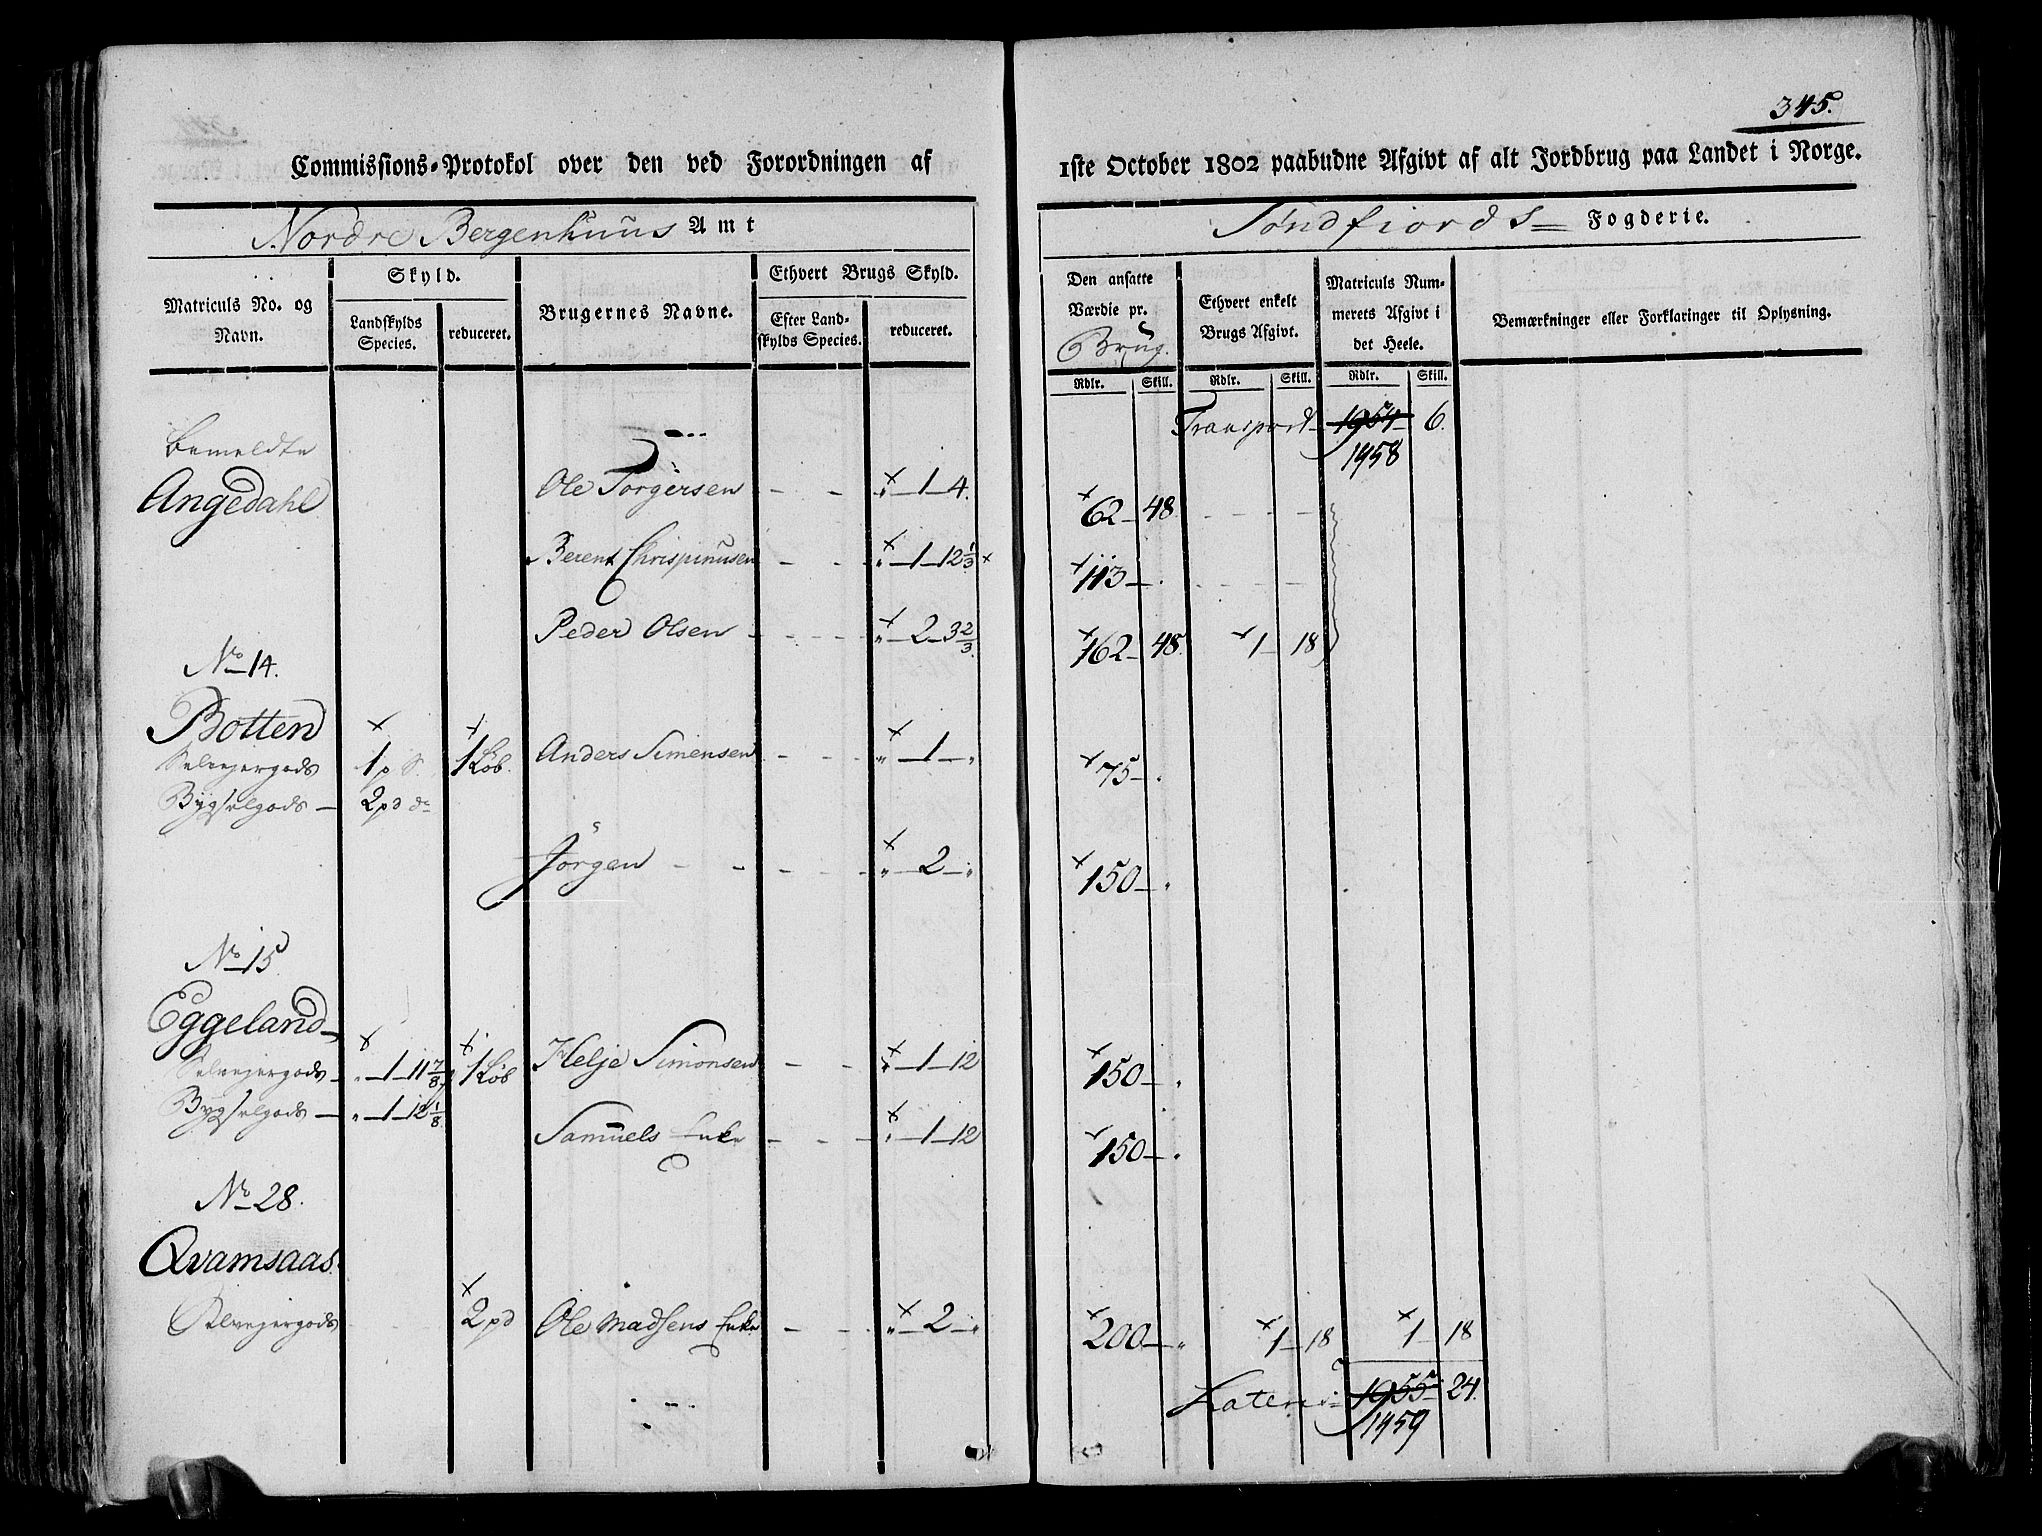 345.
Commissions-Protokol over den ved Forordningen af 1ste October 1802 paabudne Afgivt af alt Jordbrug paa Landet i Norge.
Nordre Bergenhuus Amt
Søndfiords Fogderie.
Matriculs No. og Navn.
Skyld.
Landskylds Species.
reduceret.
Brugernes Navne.
Ethvert Brugs Skyld.
Efter Landskylds Species.
reduceret.
Den ansatte Værdie pr. Brug.
Ethvert enkelt Brugs Afgivt.
Matriculs Nummerets Afgivt i det Heele.
Bemærkninger eller Forklaringer til Oplysning.
Rdlr. Skill. Rdlr. Skill. Rdlr. Skill.
Transport 1954 6.
1958
bemeldte
Angedahl Ole Torgersen - - " 1 4. 62 48
Berent Chrispinusen - - " 1 12 1/3 x 113 - .
Peder Olsen - - " 2 3 2/3 162 48. 1 18
No 14.
Botten
Selvejergods 1 p S. 1 Løb. Anders Simensen - - " 1 " 75 - .
Bygselgods - 2 pd do
Jørgen - - " 2 " 150 - "
No 15
Eggeland
Selvejergods - " 1 11 7/8 1 Løb Helje Simonsen - - " 1 12 150 - "
Bygselgods - " 1 12 1/8
Samuels Enke - - " 1 12 150 - "
No 28.
Qvamsaas.
Selvejergods 2 pd Ole Madsens Enke - - " 2 " 200 - " 1 18 1 18
Lateris 1955 24.
1959